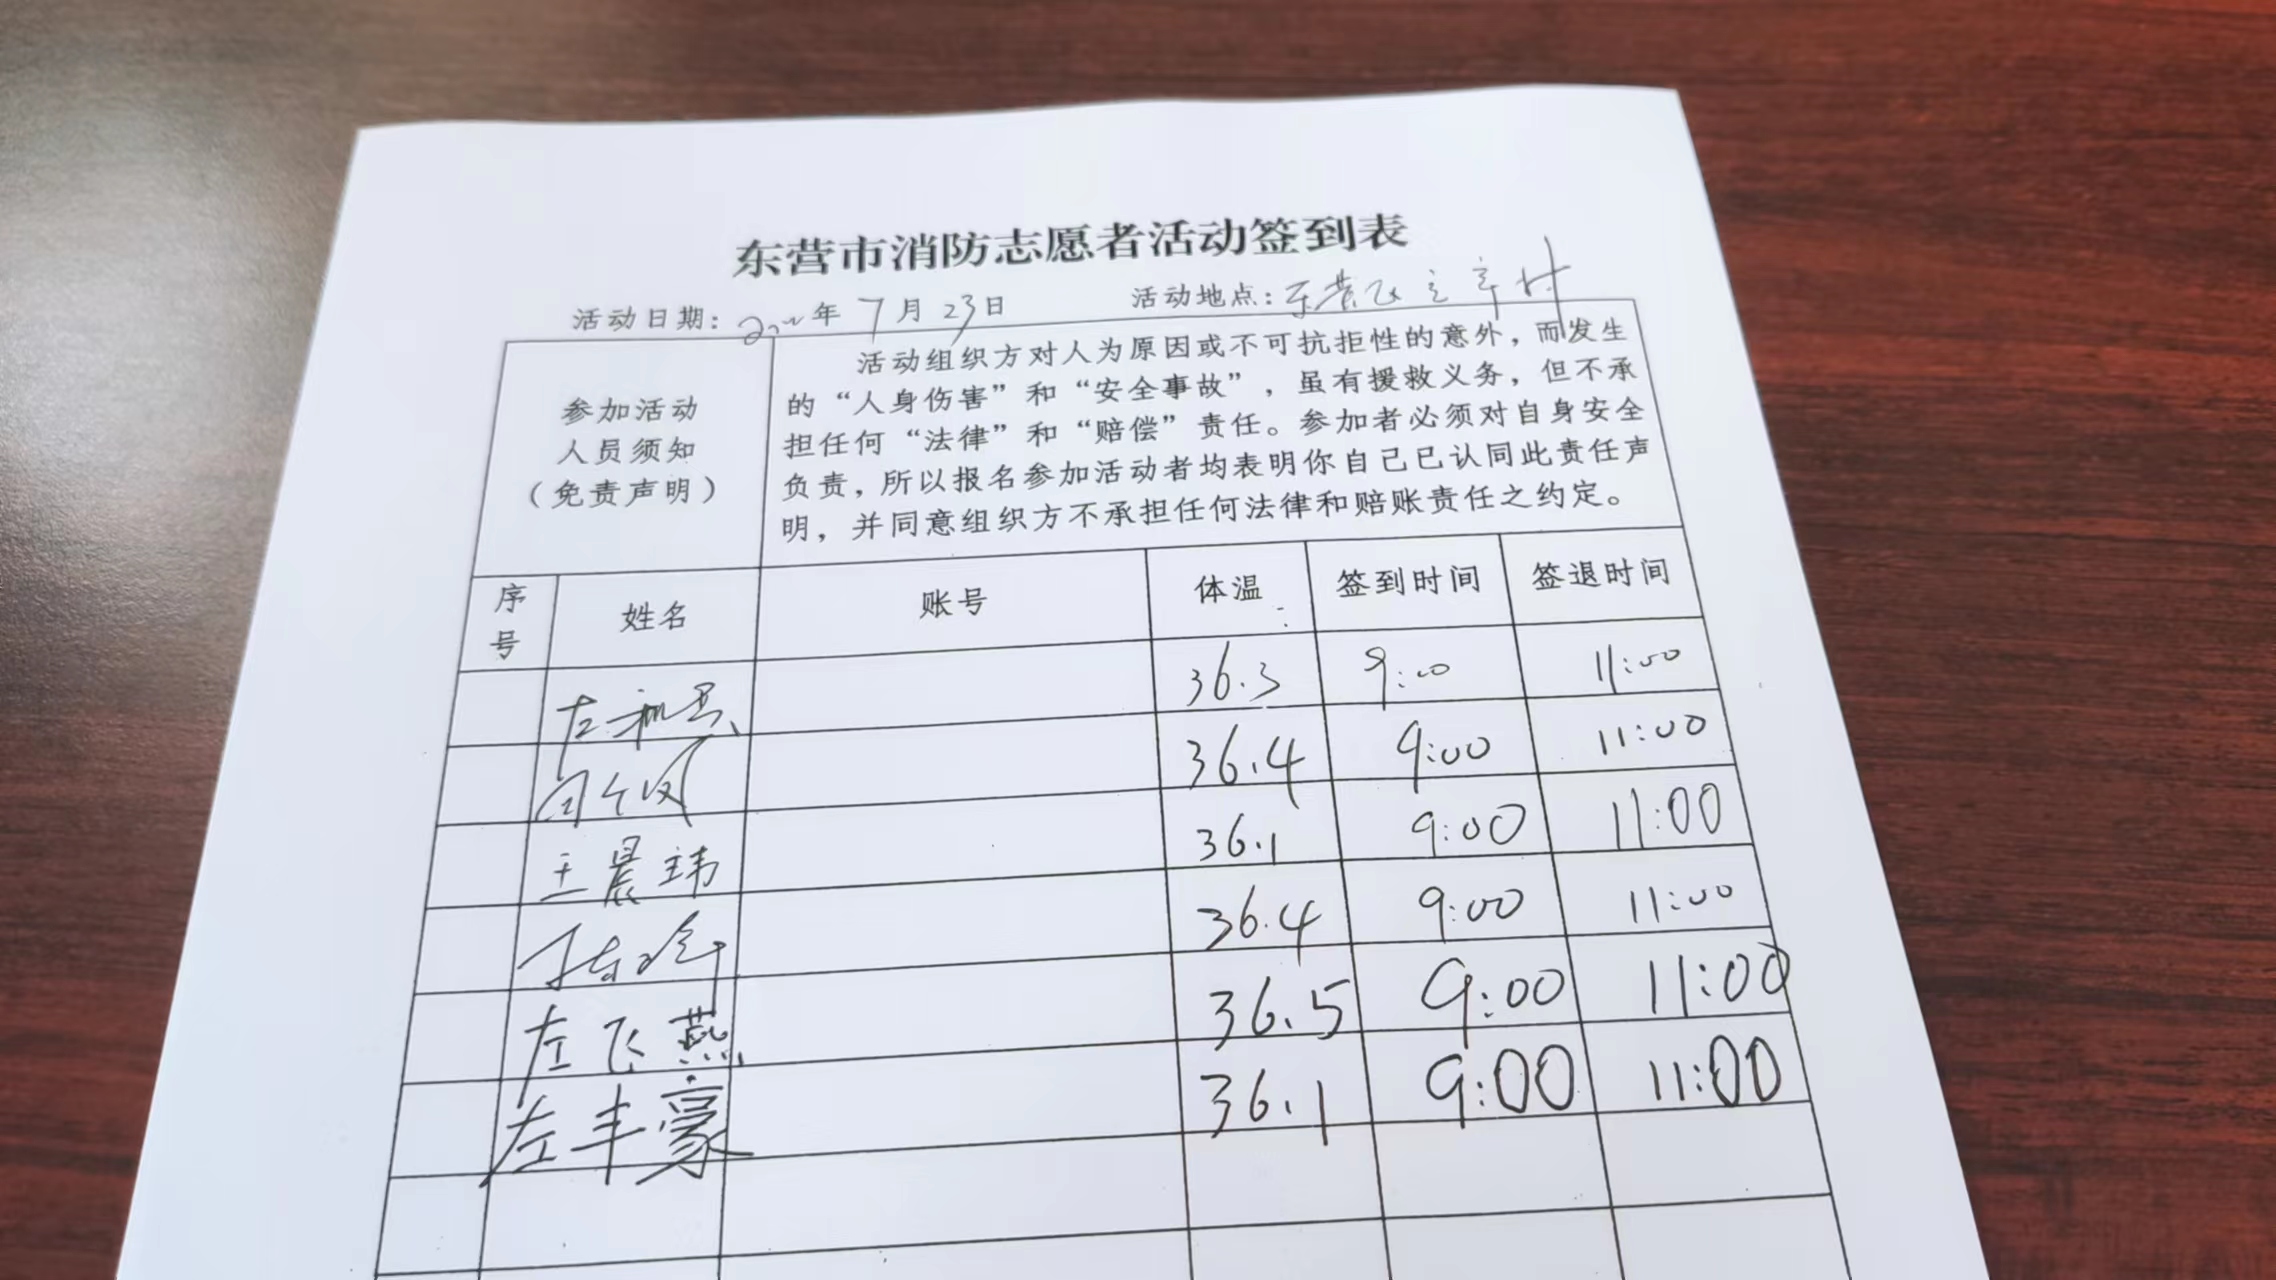 东营市消防志愿者活动签到表
活动日期: 年 7月 23日 活动地点: 东营区 辛村
参加活动
人员须知
(免责声明)
活动组织方对人为原因或不可抗拒性的意外，而发生
的“人身伤害”和“安全事故”，虽有援救义务，但不承
担任何“法律”和“赔偿”责任。参加者必须对自身安全
负责，所以报名参加活动者均表明你自己已认同此责任声
明，并同意组织方不承担任何法律和赔账责任之约定。
序号 姓名 账号 体温 签到时间 签退时间
左 36.3 9:00 11:00
36.4 9:00 11:00
王晨玮 36.1 9:00 11:00
36.4 9:00 11:00
左飞燕 36.5 9:00 11:00
左丰豪 36.1 9:00 11:00